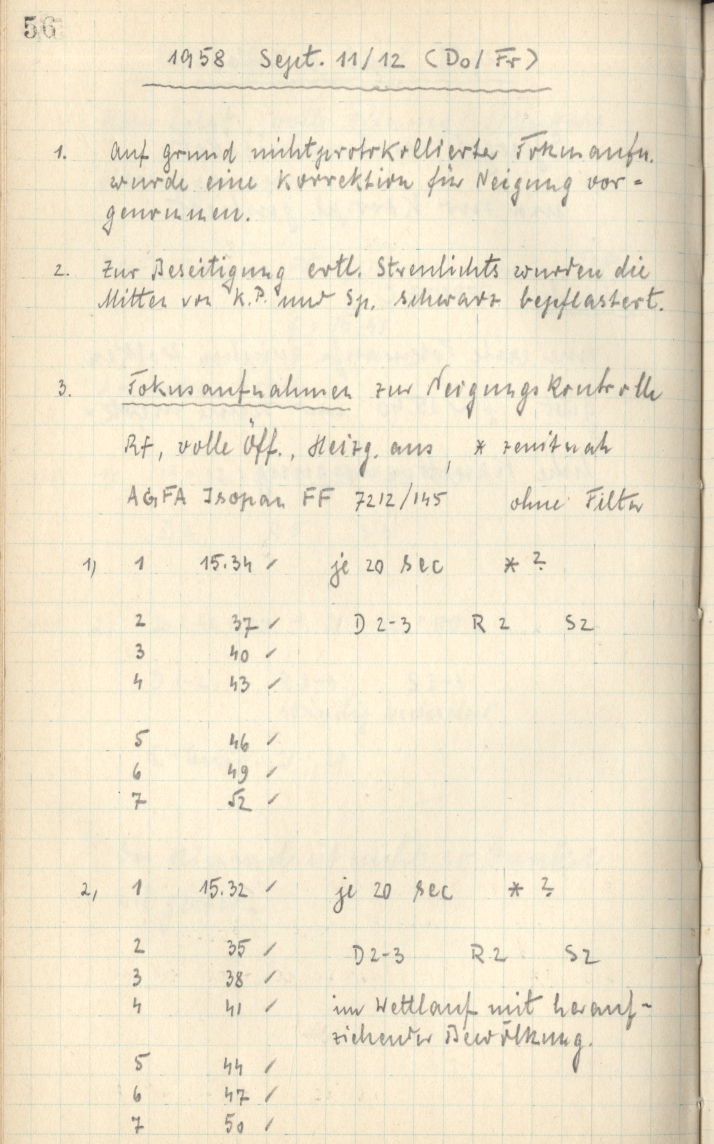 56
1958 Sept. 11/12 (Do/Fr)
1. Auf grund nichtprotokollierter Fokusaufn.
wurde eine Korrektion für Neigung vor=
genommen.
2. Zur Beseitigung evtl. Streulichts wurden die
Mitten von K.P. und Sp. schwarz bepflastert.
3. Fokusaufnahmen zur Neigungskontrolle
Rf, volle Öff., Heizg. aus, * zenitnah
AGFA Isopan FF 7212/145 ohne Filter
1, 1 15.34 ✓ je 20 sec * ?
2 37 ✓ D 2-3 R 2 S2
3 40 ✓
4 43 ✓
5 46 ✓
6 49 ✓
7 52 ✓
2, 1 15.32 ✓ je 20 sec * ?
2 35 ✓ D 2-3 R 2 S2
3 38 ✓
4 41 ✓ im Wettlauf mit herauf-
ziehender Bewölkung.
5 44 ✓
6 47 ✓
7 50 ✓